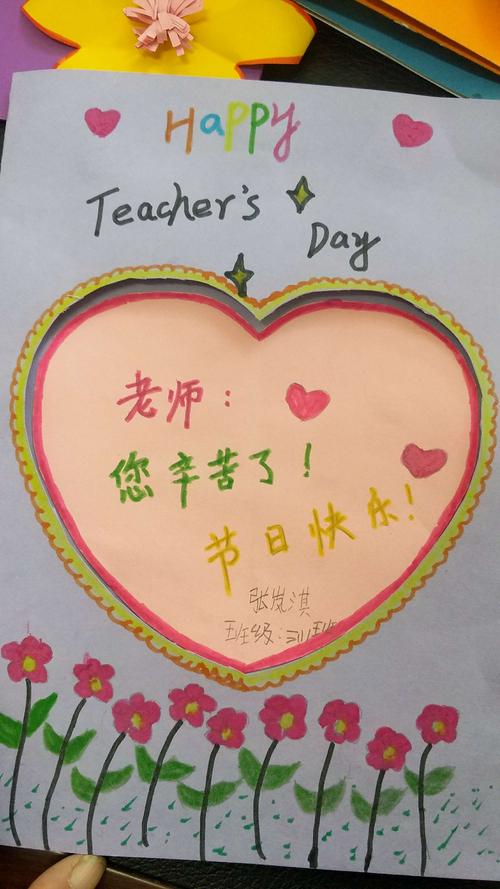 Happy
Teacher's
Day
老师：
您辛苦了！
节日快乐！
张岚淇
班级：三（1）班